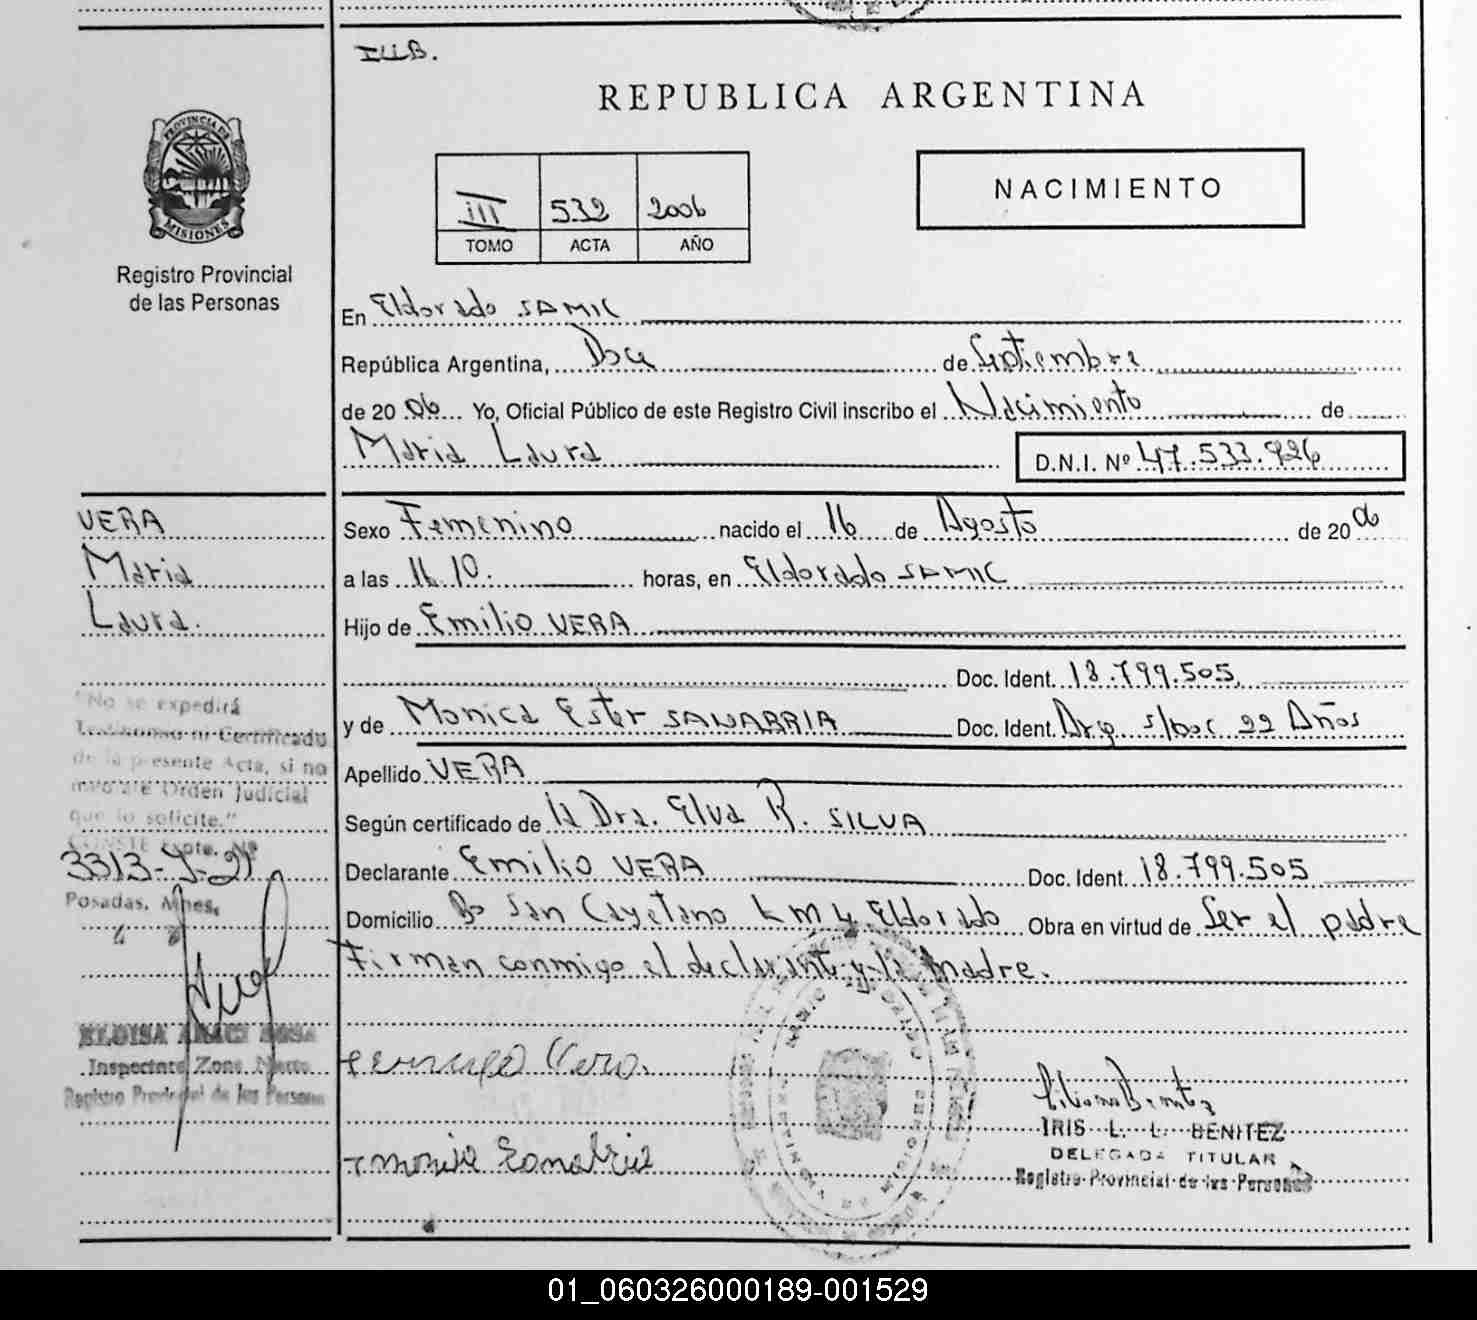 I.L.B.
REPUBLICA ARGENTINA
PROVINCIA DE
MISIONES
Registro Provincial
de las Personas
III 532 2006
TOMO ACTA AÑO
NACIMIENTO
En Eldorado SAMIC
República Argentina, Doce de Septiembre
de 20 06 Yo, Oficial Público de este Registro Civil inscribo el Nacimiento de
Maria Laura D.N.I. Nº 47.533.926
VERA
Maria
Laura.
Sexo Femenino nacido el 16 de Agosto de 20 06
a las 16.10. horas, en Eldorado SAMIC
Hijo de Emilio VERA
Doc. Ident. 18.799.505.
y de Monica Ester SANABRIA Doc. Ident. Arg. s/doc 22 Años
Apellido VERA
Según certificado de la Dra. Elva R. SILVA
Declarante Emilio VERA Doc. Ident. 18.799.505
Domicilio Bº San Cayetano km 4 Eldorado Obra en virtud de Ser el padre
Firman conmigo el declarante y la madre.
"No se expedirá
Testimonio ni Certificado
de la presente Acta, si no
Orden Judicial
que lo solicite."
CONSTE Expte. Nº
3313-J-21
Posadas, Mnes,
Inspectora Zona Norte
Registro Provincial de las Personas
Vera.
Monica Sanabria
IRIS L. L. BENITEZ
DELEGADA TITULAR
Registro Provincial de las Personas
01_060326000189-001529